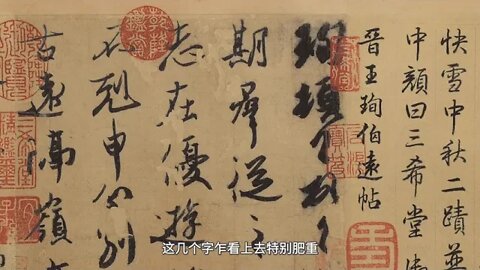 快雪中秋二蹟並
中顏曰三希堂
晉王珣伯遠帖
珣頓首頓首
期群從之
志在優遊
不剋申分別
古遠隔嶺
这几个字乍看上去特别肥重